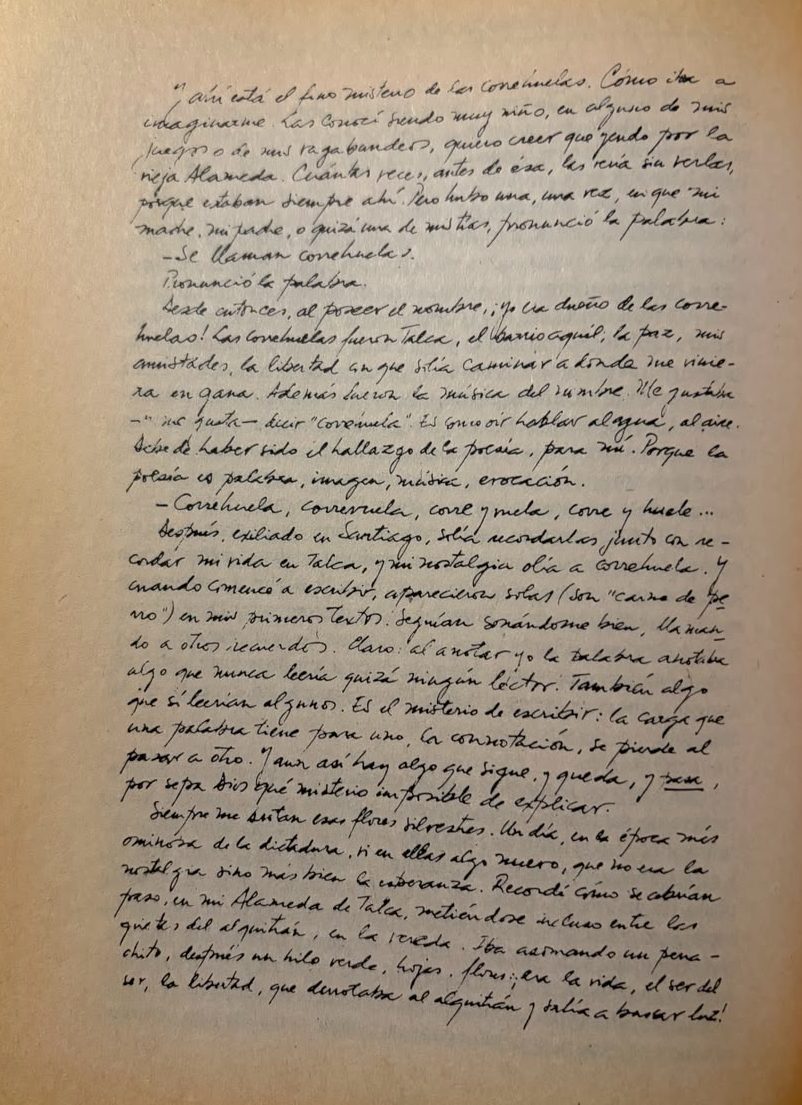 "Ahí está el fino misterio de las correhuelas. Cómo iba a
imaginarme. Las conocí siendo muy niño, en alguno de mis
juegos o de mis vagabundeos, quiero creer que yendo por la
vieja Alameda. Cuántas veces, antes de ésa, las vería sin verlas,
porque estaban siempre ahí. Pero hubo una, una vez, en que mi
madre, mi padre, o quizá una de mis tías, pronunció la palabra:
—Se llaman correhuelas.
Pronunció la palabra.
Desde entonces, al poseer el nombre, ¡yo era dueño de las corre-
huelas! Las correhuelas fueron Talca, el barrio aquél, la paz, mis
amistades, la libertad en que solía caminar a donde me vinie-
ra en gana. Además fueron la música del nombre. Me gustaba
—me gusta— decir "correhuela". Es como oír hablar al agua, al aire.
Debe de haber sido el hallazgo de la poesía, para mí. Porque la
poesía es palabra, imagen, música, evocación.
—Correhuela, correvuela, corre y vuela, corre y huele...
Después, exiliado en Santiago, solía recordarlas junto con re-
cordar mi vida en Talca, y mi nostalgia olía a correhuela. Y
cuando comencé a escribir, aparecieron solas (son "carne de pe
rro") en mis primeros textos. Seguían sonándome bien, llaman
do a otros recuerdos. Claro: al anotar yo la palabra anotaba
algo que nunca leería quizá ningún lector. También algo
que sí leerían algunos. Es el misterio de escribir: la carga que
una palabra tiene para uno, la connotación, se pierde al
pasar a otro. Y aun así hay algo que sigue, y queda, y pasa,
por sepa Dios qué misterio imposible de explicar.
Siempre me gustan esas flores silvestres. Un día, en la época más
ominosa de la dictadura, vi en ellas algo nuevo, que no era la
nostalgia sino más bien la esperanza. Recordé cómo se abrían
paso, en mi Alameda de Talca, metiéndose incluso entre las
grietas del alquitrán, en la vereda. Iba asomando un pena-
chito, después un hilo verde, hojas, flores: ¡era la vida, el ser del
ser, la libertad, que derrotaba al alquitrán y salía a buscar luz!